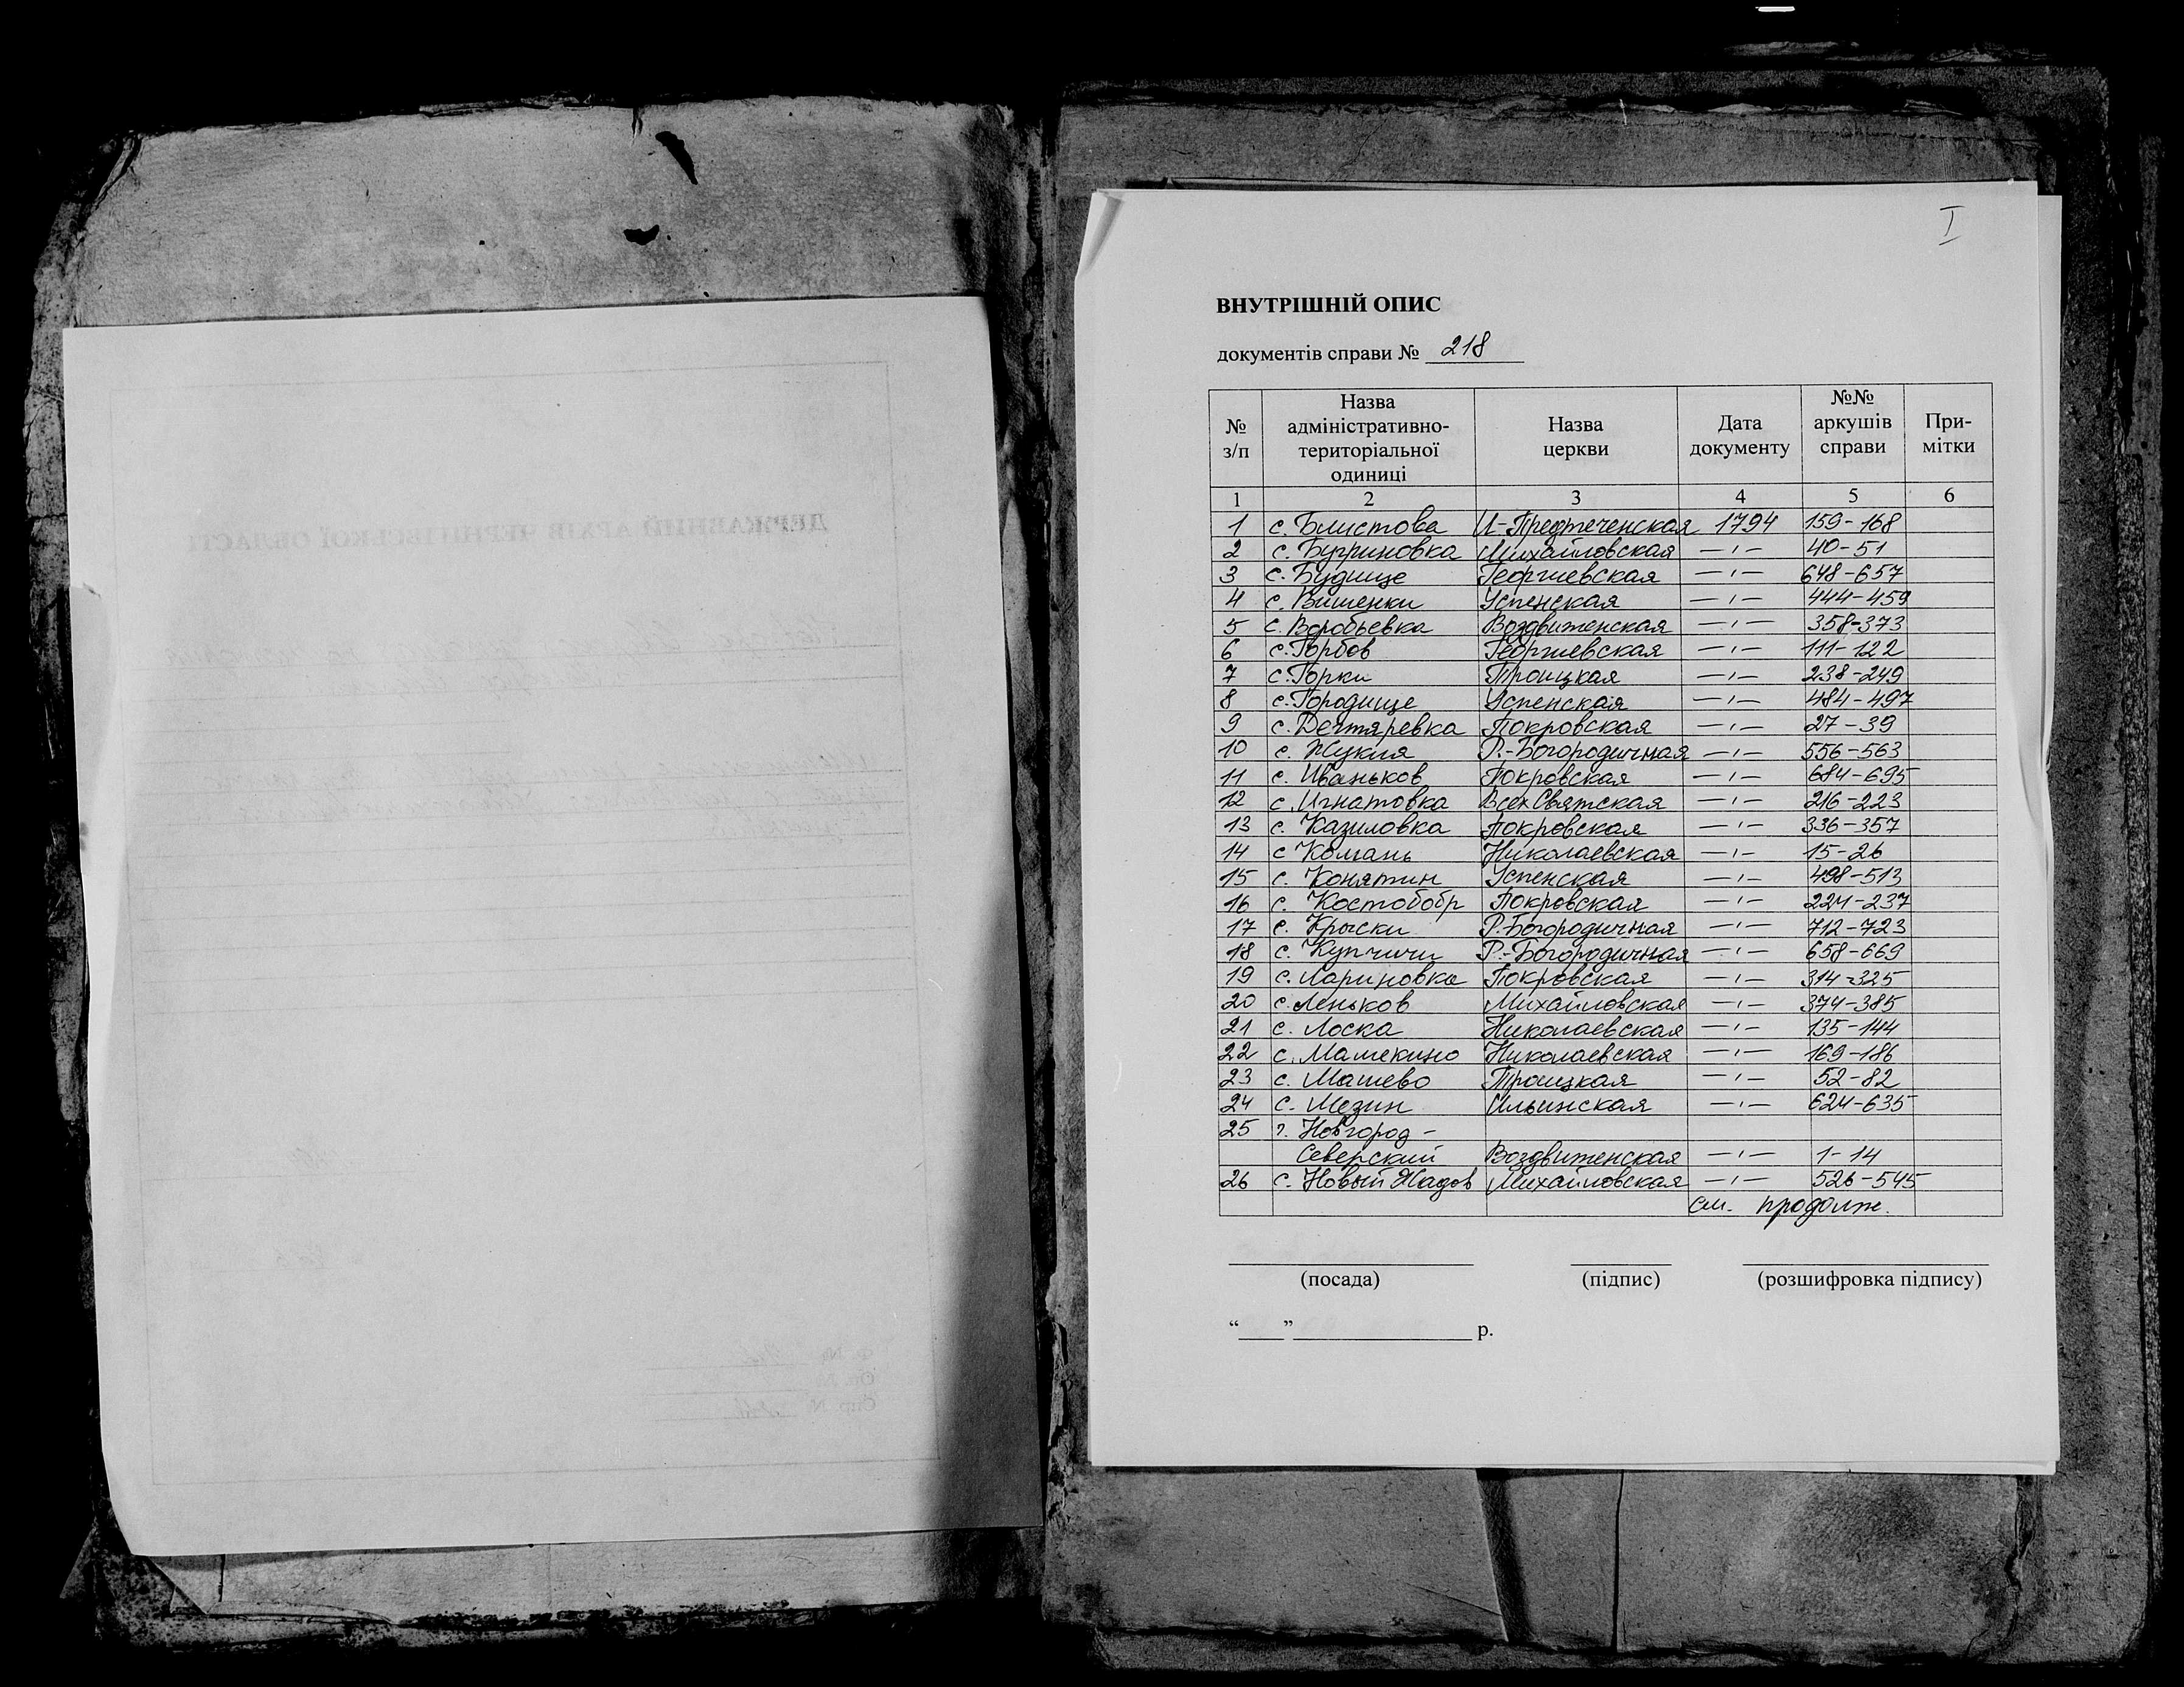 I
ВНУТРІШНІЙ ОПИС
документів справи № 218
№ з/п | Назва адміністративно-територіальної одиниці | Назва церкви | Дата документу | №№ аркушів справи | Примітки
1 2 3 4 5 6
1 с. Блистова И-Предтеченская 1794 159-168
2 с. Бугриновка Михайловская —ı— 40-51
3 с. Будище Георгиевская —ı— 648-657
4 с. Вишенки Успенская —ı— 444-459
5 с. Воробьевка Воздвиженская —ı— 358-373
6 с. Горбов Георгиевская —ı— 111-122
7 с. Горки Троицкая —ı— 238-249
8 с. Городище Успенская —ı— 484-497
9 с. Дегтяревка Покровская —ı— 27-39
10 с. Жукля Р.-Богородичная —ı— 556-563
11 с. Иваньков Покровская —ı— 684-695
12 с. Игнатовка ВсехСвятская —ı— 216-223
13 с. Казиловка Покровская —ı— 336-357
14 с Комань Николаевская —ı— 15-26
15 с. Конятин Успенская —ı— 498-513
16 с. Костобобр Покровская —ı— 224-237
17 с. Крыски Р.Богородичная —ı— 712-723
18 с. Купчичи Р.-Богородичная —ı— 658-669
19 с. Лариновка Покровская —ı— 314-325
20 с. Леньков Михайловская —ı— 374-385
21 с. Лоска Николаевская —ı— 135-144
22 с. Мамекино Николаевская —ı— 169-186
23 с. Машево Троицкая —ı— 52-82
24 с. Мезин Ильинская —ı— 624-635
25 г. Новгород-
Северский Воздвиженская —ı— 1-14
26 с. Новый Жадов Михайловская —ı— 526-545
см. продолж.
(посада) (підпис) (розшифровка підпису)
“____”________________ р.
ДЕРЖАВНИЙ АРХІВ ЧЕРНІГІВСЬКОЇ ОБЛАСТІ